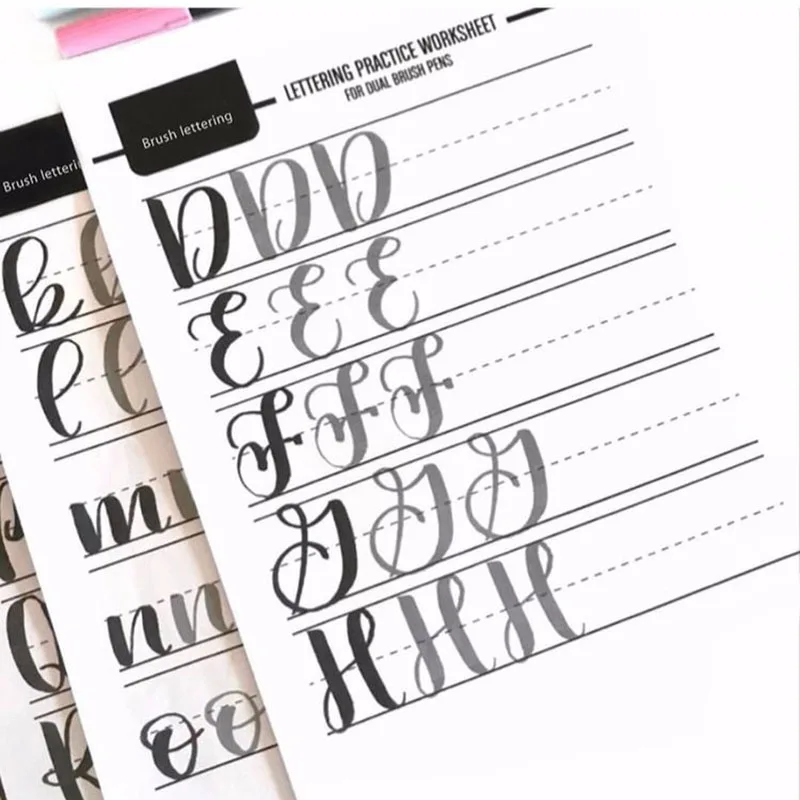 LETTERING PRACTICE WORKSHEET
FOR DUAL BRUSH PENS
Brush lettering
D D D
E E E
F F F
G G G
H H H
Brush letteri
l l
m
n n
o o
Q